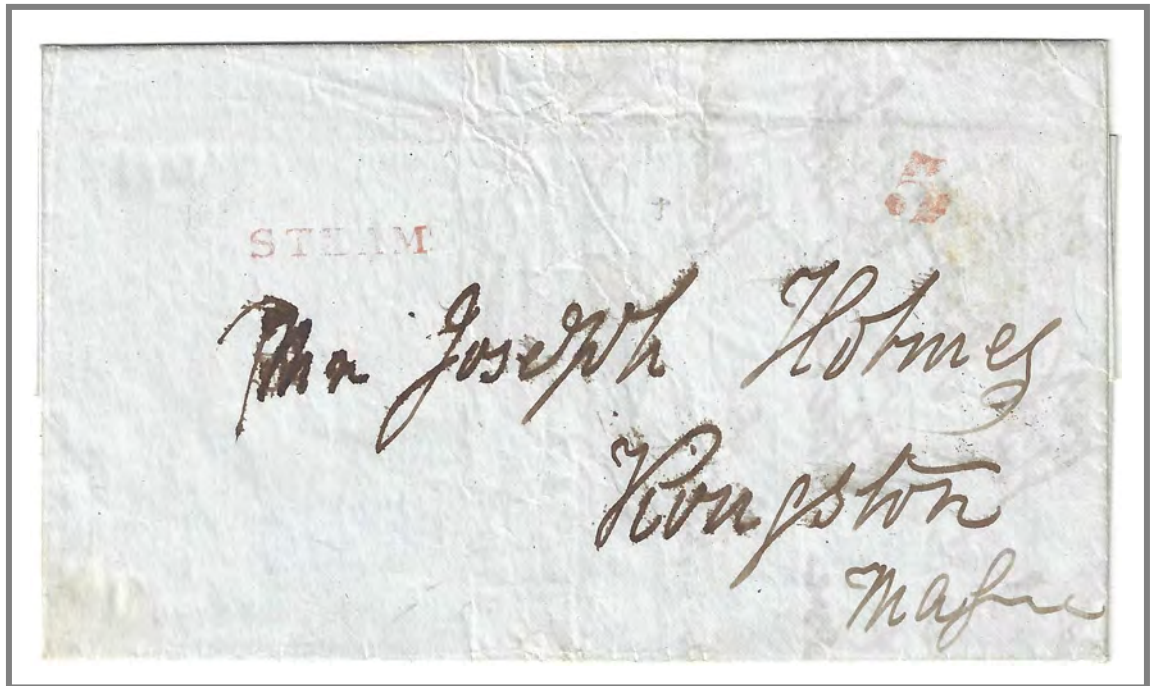 5
STEAM
Mr Joseph Holmes
Kingston
Mass